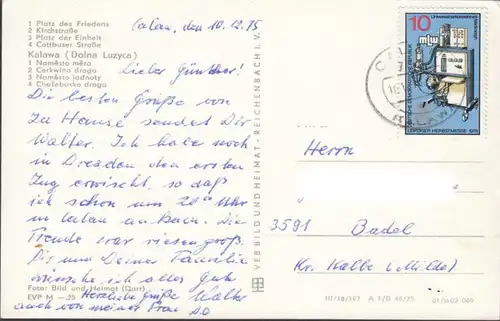 1 Platz des Friedens
2 Kirchstraße
3 Platz der Einheit
4 Cottbuser Straße
Kalawa (Dolna Łuzyca)
1 Naměsto měra
2 Cerkwina droga
3 Naměsto jadnoty
4 Chośebuska droga
Calau, den 10.12.75
Lieber Günther!
Die besten Grüße von
zu Hause sendet Dir
Walter. Ich habe noch
in Dresden den ersten
Zug erwischt, so daß
ich schon um 20 Uhr
in Calau an. Die
Freude war riesengroß.
Dir und Deiner Familie
wünsche ich alles Gute
Herzliche Grüße Walter
auch von meiner Frau
Foto: Bild und Heimat (Darr)
EVP M -,25
VEB BILD UND HEIMAT · REICHENBACH I. V.
10
mlw
LEIPZIGER HERBSTMESSE 1975
CALAU
Herrn
3591 Badel
Kr. Kalbe (Milde)
III/18/197 A 1/B 40/75 01 03 02 069